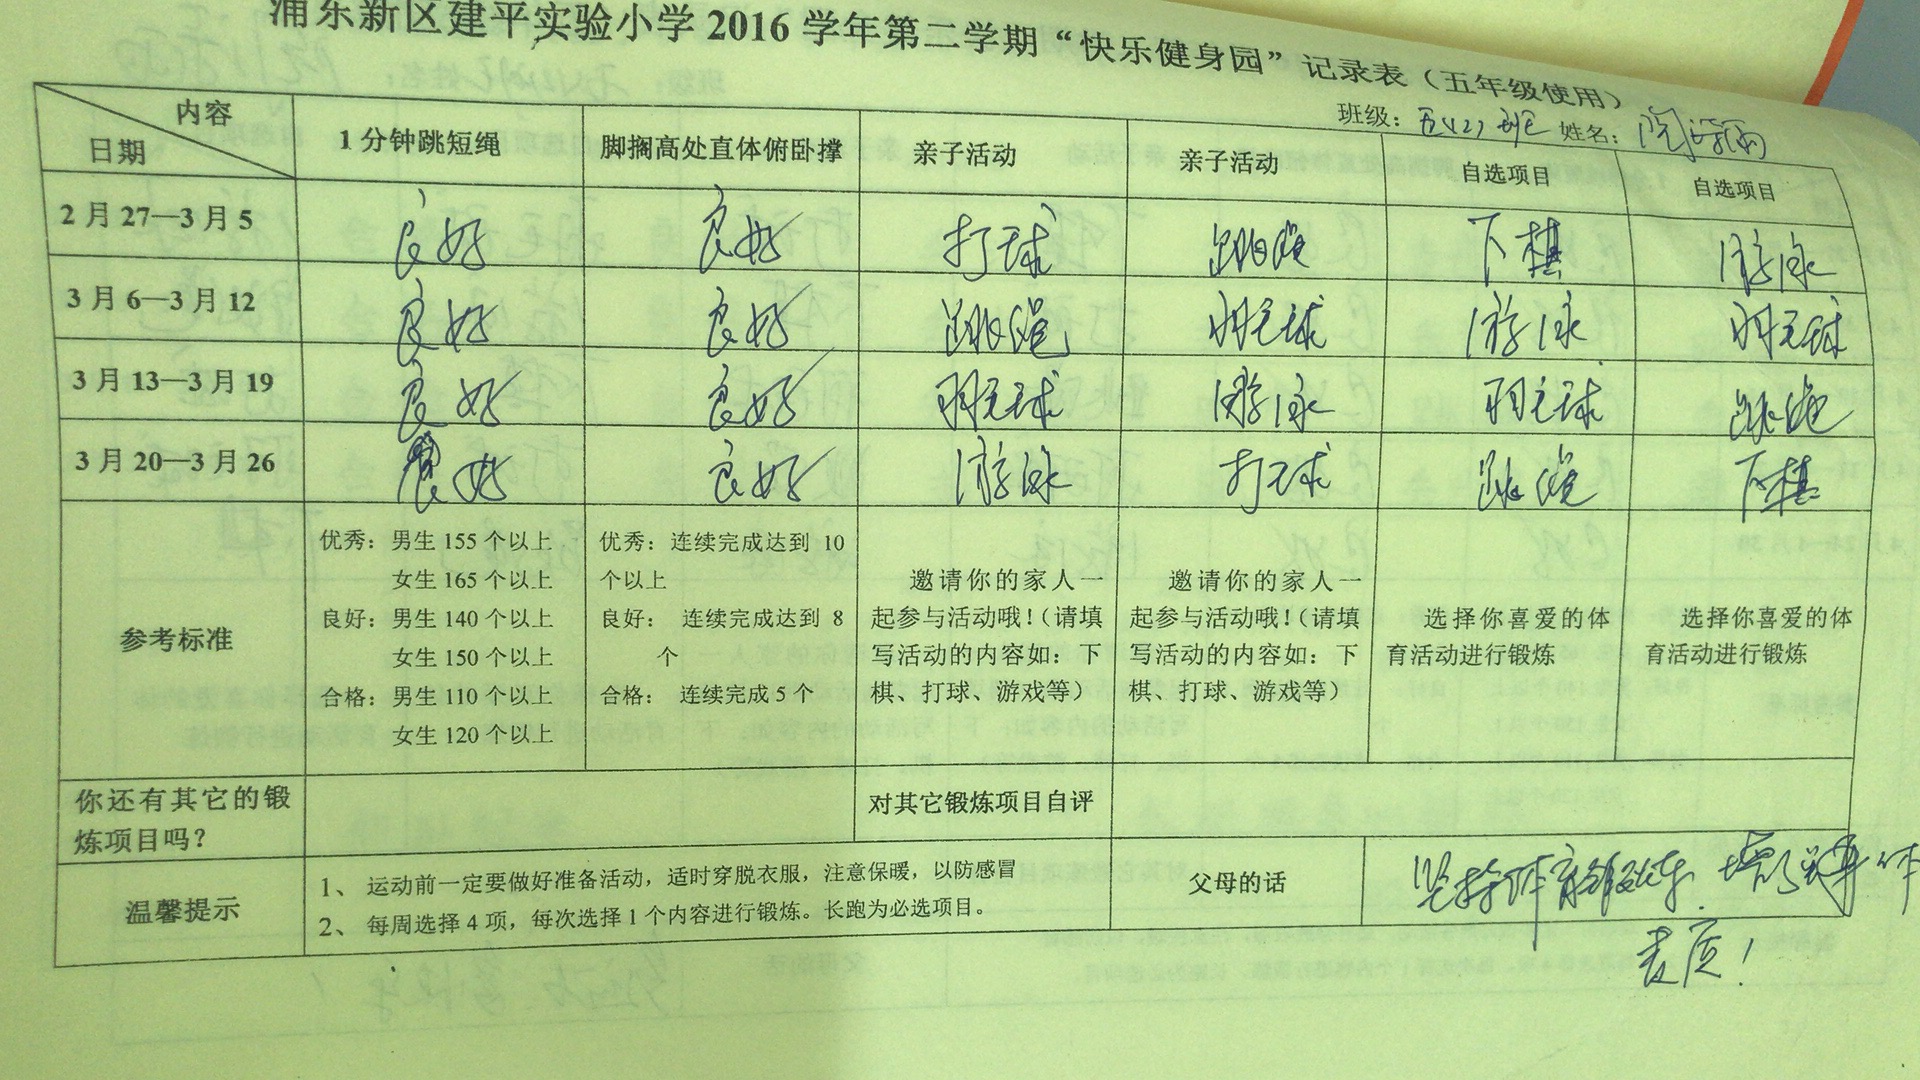 浦东新区建平实验小学 2016 学年第二学期“快乐健身园”记录表（五年级使用）
班级：五（2）班 姓名：
内容 日期 1 分钟跳短绳 脚搁高处直体俯卧撑 亲子活动 亲子活动 自选项目 自选项目
2 月 27—3 月 5 良好 良好 打球 跳绳 下棋 游泳
3 月 6—3 月 12 良好 良好 跳绳 羽毛球 游泳 羽毛球
3 月 13—3 月 19 良好 良好 羽毛球 游泳 羽毛球 跳绳
3 月 20—3 月 26 良好 良好 游泳 打球 跳绳 下棋
参考标准
优秀：男生 155 个以上
女生 165 个以上
良好：男生 140 个以上
女生 150 个以上
合格：男生 110 个以上
女生 120 个以上
优秀：连续完成达到 10
个以上
良好： 连续完成达到 8
个
合格： 连续完成 5 个
邀请你的家人一
起参与活动哦！（请填
写活动的内容如：下
棋、打球、游戏等）
邀请你的家人一
起参与活动哦！（请填
写活动的内容如：下
棋、打球、游戏等）
选择你喜爱的体
育活动进行锻炼
选择你喜爱的体
育活动进行锻炼
你还有其它的锻
炼项目吗？
对其它锻炼项目自评
温馨提示
1、 运动前一定要做好准备活动，适时穿脱衣服，注意保暖，以防感冒
2、 每周选择 4 项，每次选择 1 个内容进行锻炼。长跑为必选项目。
父母的话
坚持体育锻炼，增强身体
素质！